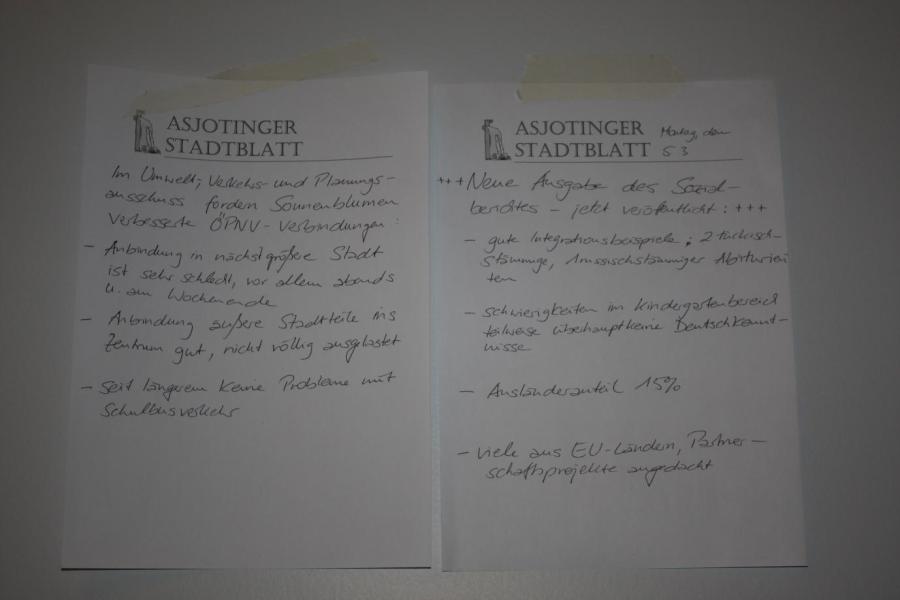 ASJOTINGER
STADTBLATT
Im Umwelt-, Verkehrs- und Planungs-
ausschuss fordern Sonnenblumen
verbesserte ÖPNV-Verbindungen:
- Anbindung in nächstgrößere Stadt
ist sehr schlecht, vor allem abends
u. am Wochenende
- Anbindung äußere Stadtteile ins
Zentrum gut, nicht völlig ausgelastet
- Seit längerem keine Probleme mit
Schulbusverkehr
ASJOTINGER
STADTBLATT
Montag, den
5 3
+++ Neue Ausgabe des Sozial-
berichtes - jetzt veröffentlicht: +++
- gute Integrationsbeispiele: 2 türkisch-
stämmige, 1 russischstämmiger Abiturien
ten
- Schwierigkeiten im Kindergartenbereich
teilweise überhaupt keine Deutschkennt-
nisse
- Ausländeranteil 15%
- viele aus EU-Ländern, Partner-
schaftsprojekte angedacht